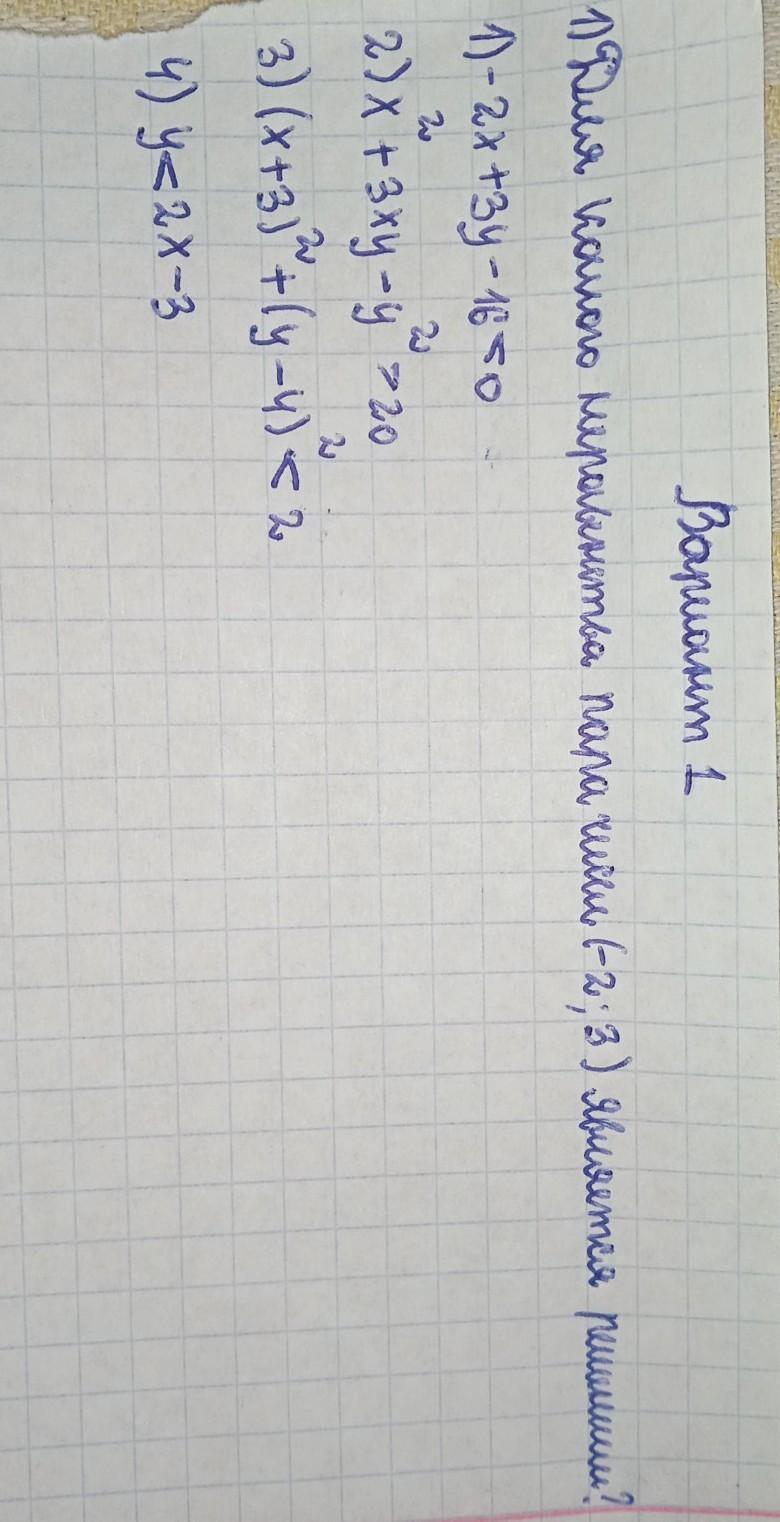 Вариант 1
1) Для какого неравенства пара чисел (-2; 3) является решением?
1) -2x+3y-16<0
2) x²+3xy-y²>20
3) (x+3)²+(y-4)²<2
4) y<2x-3